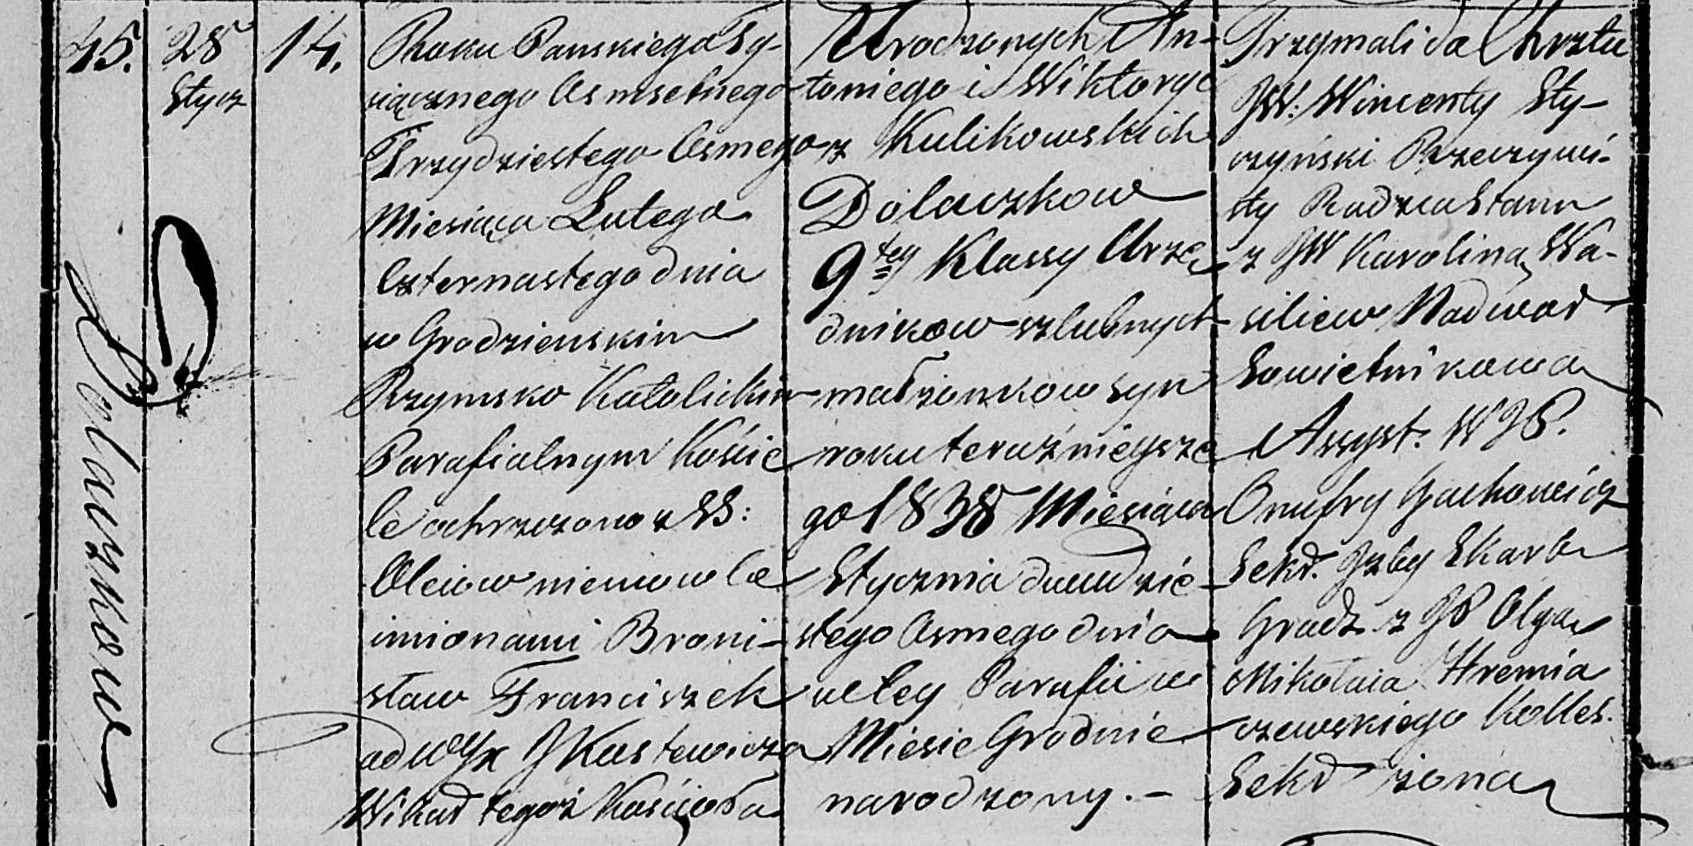 45.
28
Stycz
14.
Dolaczkow
Roku Panskiego Ty-
siącznego Osmsetnego
Trzydziestego Osmego
Miesiąca Lutego
Czternastego dnia
w Grodzienskim
Rzymsko Katolickim
Parafialnym Koście
le ochrzczono z SS:
Oleiow niemowle
imionami Broni-
sław Franciszek
od WJX J Kustewicza
Wikar tegoż Kościoła
Urodzonych An-
toniego i Wiktoryi
z Kulikowskich
Dolaczkow
9tey Klassy Urzę
dnikow szlubnych
małżonkow syn
roku teraźnieysze
go 1838 Miesiąca
Stycznia dwudzie-
stego Osmego dnia
w tey Parafii w
Miesie Grodnie
narodzony. –
Trzymali do Chrztu
JW. Wincenty Sty-
czyński Rzeczywi-
sty Radzca Stanu
z JW Karoliną Wa-
siliew Nadwor
Sowietnikową
Assyst. WJP.
Onufry Juchowicz
Sekr. Izby Skarb
Grodz. z JP Olgą
Mikołaia Hremia
czewskiego Kolles.
Sekr żoną